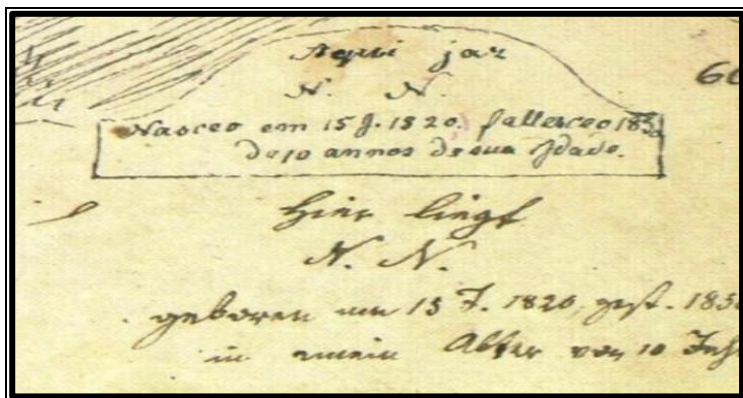 Aqui jaz
N. N.
60
Nasceo em 15 J. 1820, fallesceo 1830
de 10 annos de sua Idade.
Hier liegt
N. N.
geboren am 15 J. 1820, gest. 1830
in einem Alter von 10 Jah